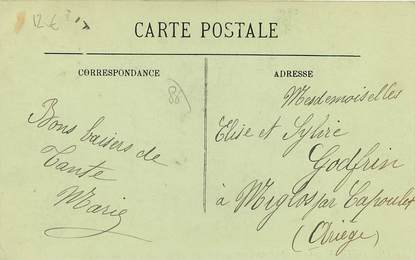 12 €
CARTE POSTALE
CORRESPONDANCE
ADRESSE
Bons baisers de
Tante
Marie
Mesdemoiselles
Elise et Sylvie
Godfrin
à Miglos par Capoulet
(Ariège)